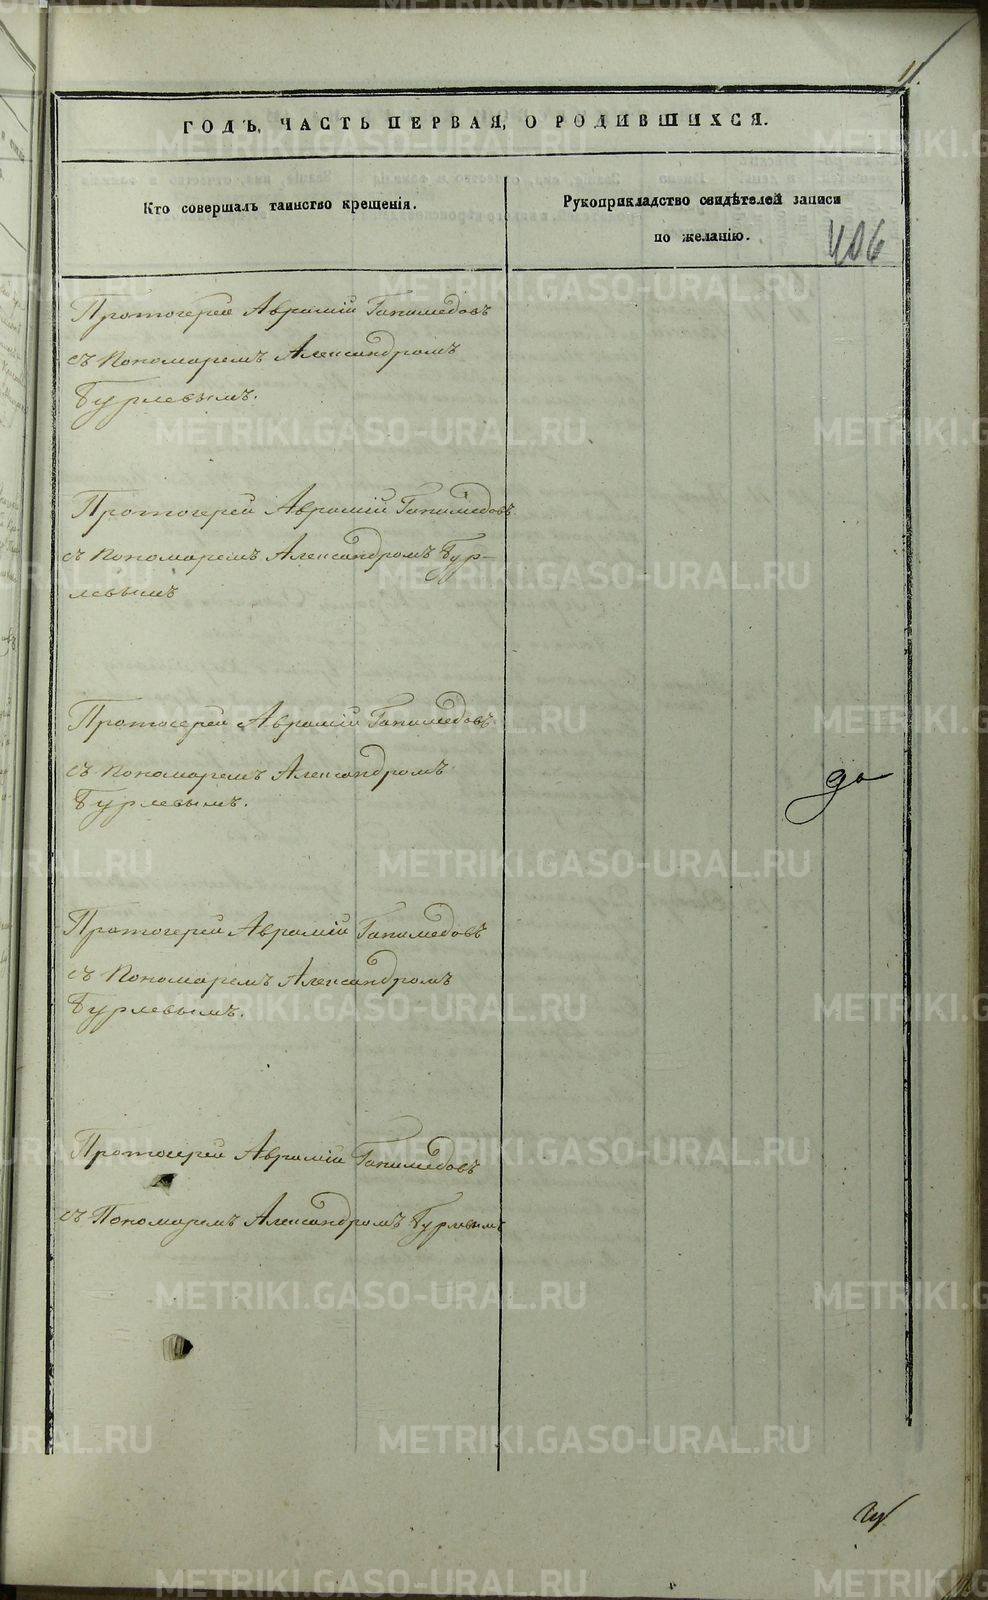 11.
ГОДЪ, ЧАСТЬ ПЕРВАЯ, О РОДИВШИХСЯ.
Кто совершалъ таинство крещенія.
Рукоприкладство свидѣтелей записи
по желанію.
406
Протоіерей Аврамій Ганимедовъ
съ Пономаремъ Александромъ
Бурлевымъ.
Протоіерей Аврамій Ганимедовъ
съ Пономаремъ Александромъ Бур-
левымъ
Протоіерей Аврамій Ганимедовъ
съ Пономаремъ Александромъ
Бурлевымъ.
до
Протоіерей Аврамій Ганимедовъ
съ Пономаремъ Александромъ
Бурлевымъ.
Протоіерей Аврамій Ганимедовъ
съ Пономаремъ Александромъ Бурлевымъ
METRIKI.GASO-URAL.RU